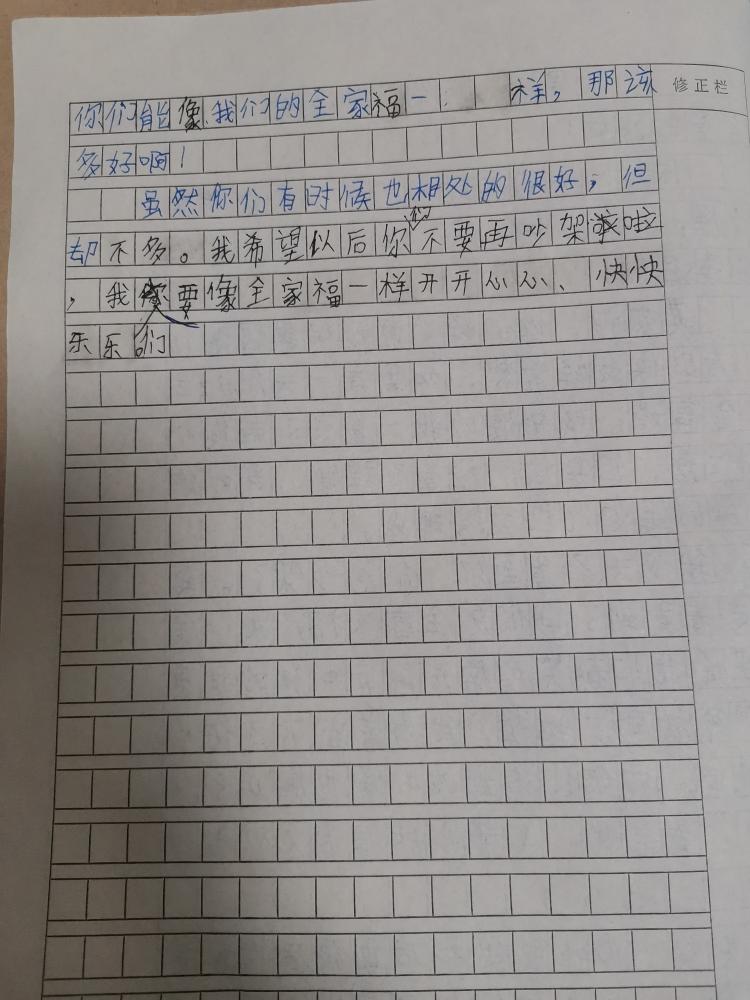 修正栏
你们能像我们的全家福一样，那该
多好啊！
虽然你们有时候也相处的很好，但
却不多。我希望以后你们不要再吵架啦
，我们要像全家福一样开开心心、快快
乐乐。